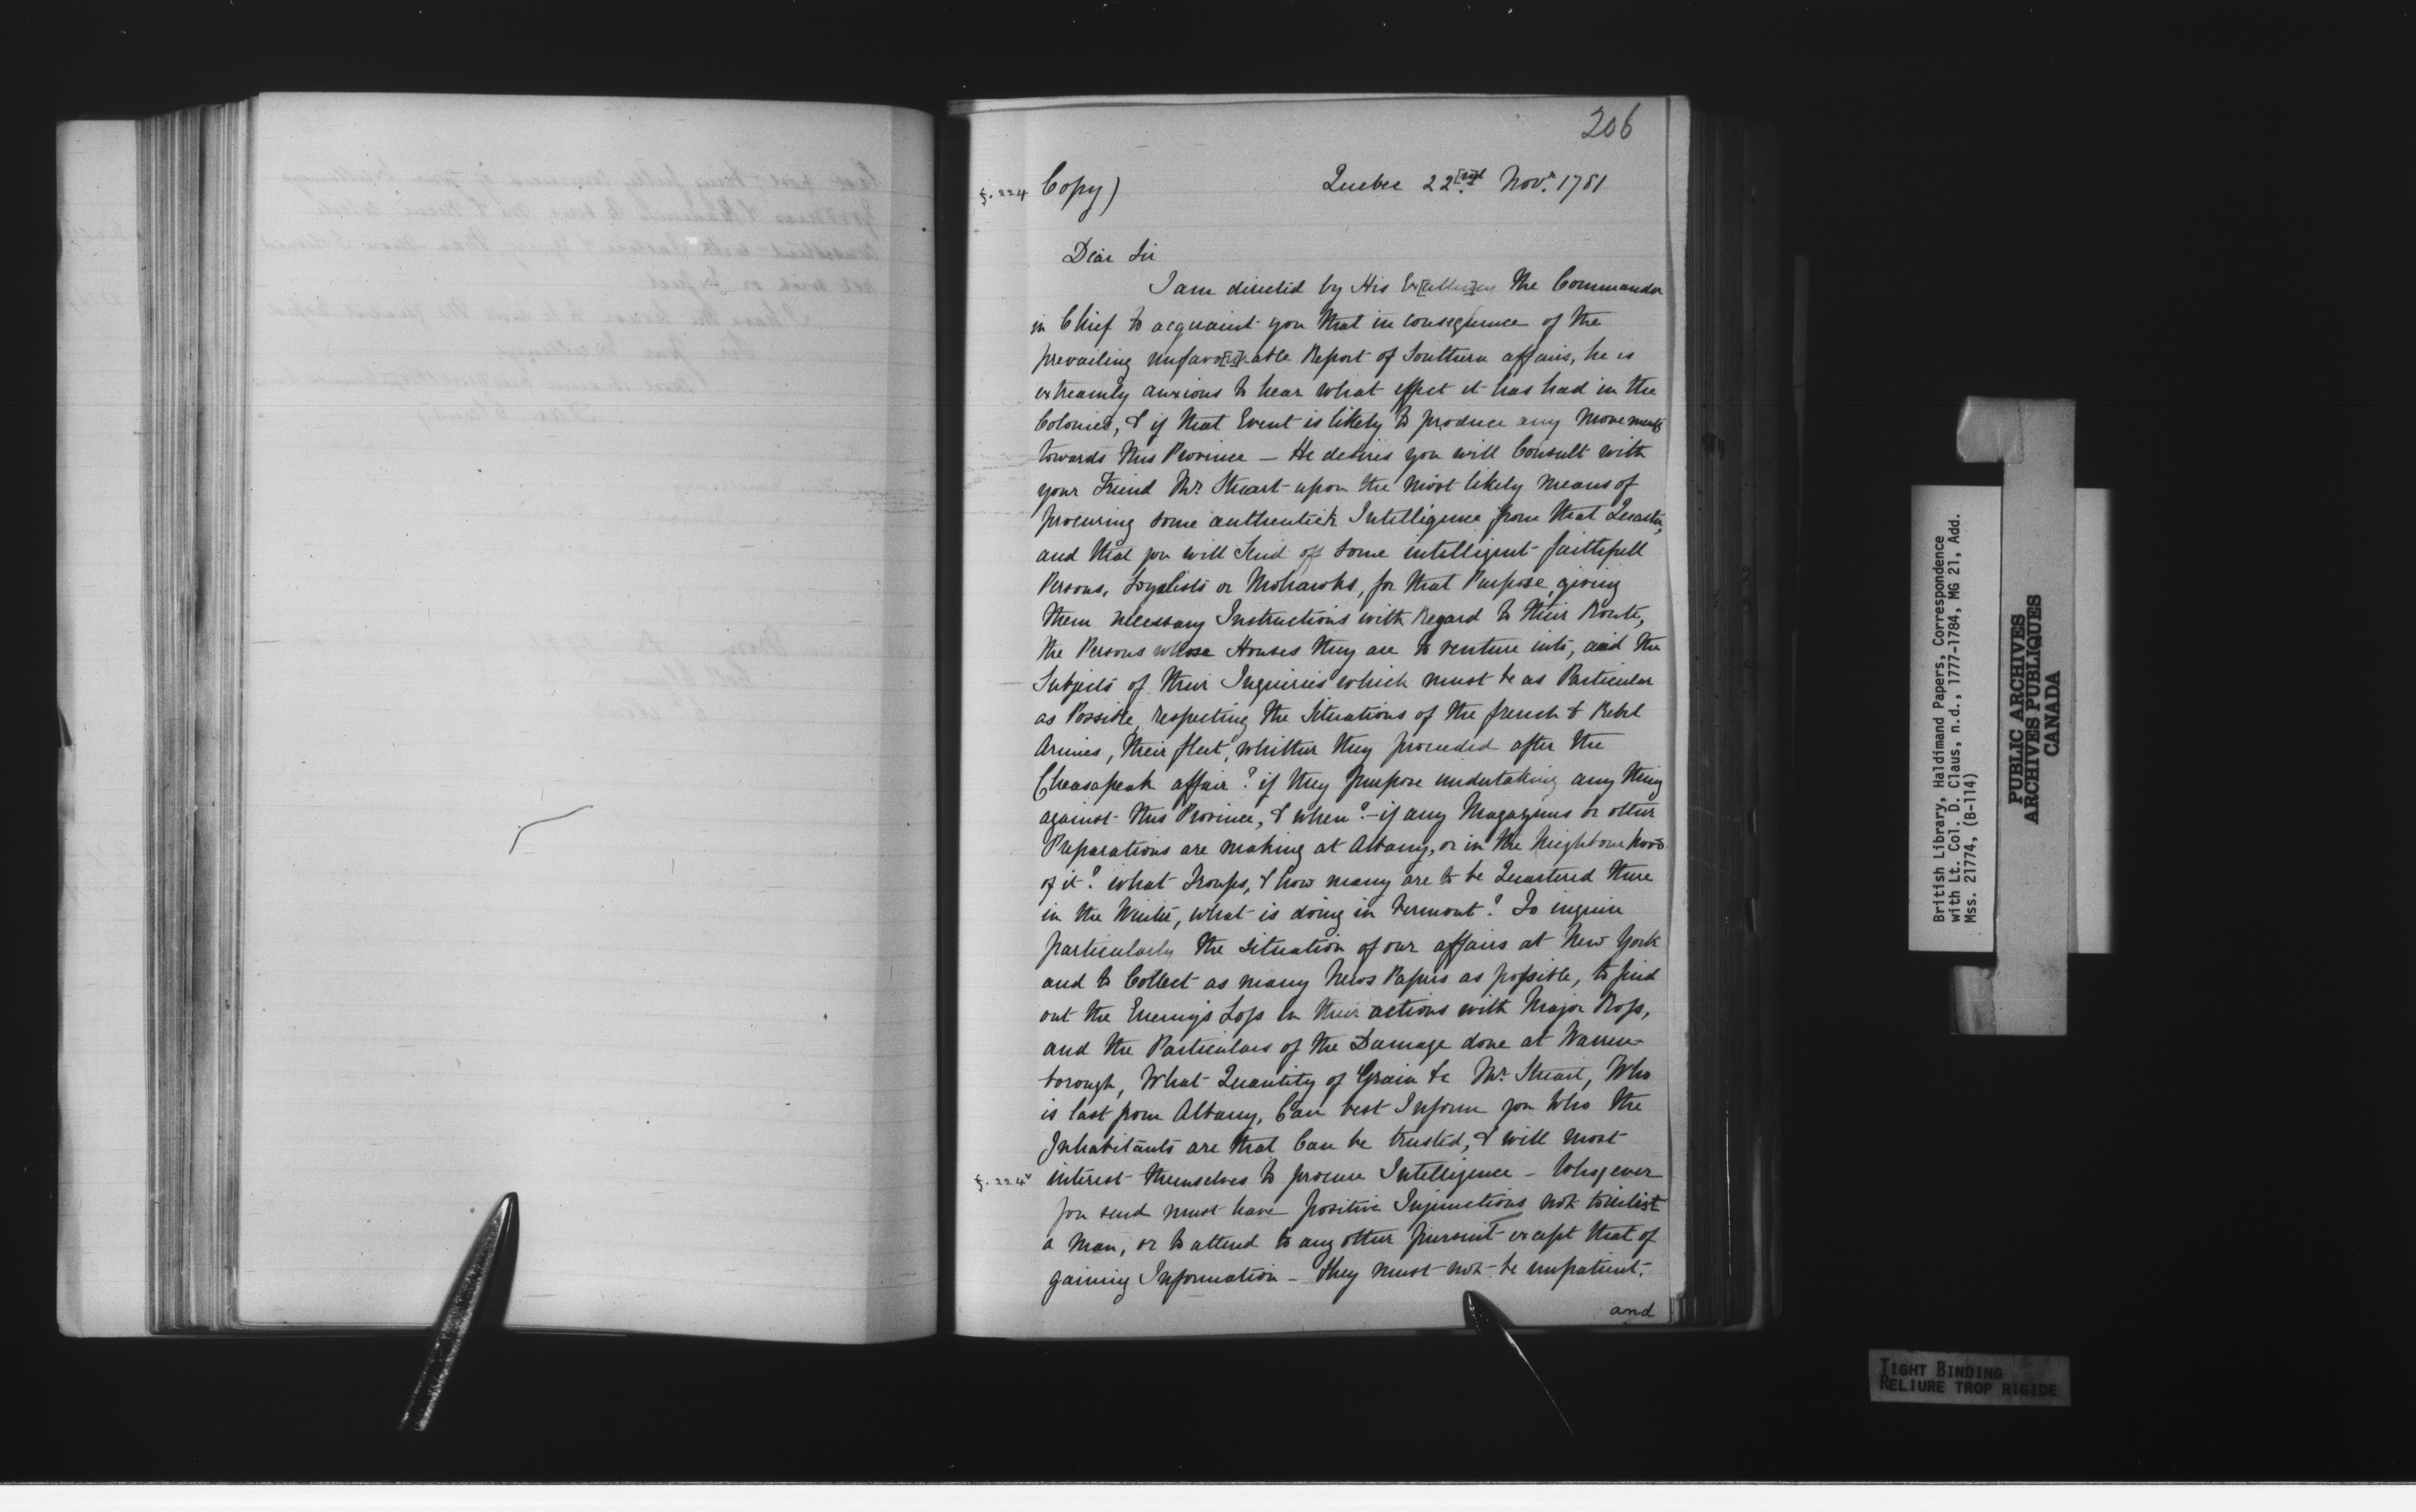 206
f. 224 Copy) Quebec 22[nd] Novr. 1781
Dear Sir
I am directed by His Ex[cellen]cy the Commander
in Chief to acquaint you that in consequence of the
prevailing unfavo[u]rable Report of Southern affairs, he is
extreamly anxious to hear what effect it has had in the
Colonies, & if that Event is likely to produce any movements
towards this Province – He desires you will Consult with
your Friend Mr. Stuart upon the most likely means of
procuring some authentick Intelligence from that Quarter,
and that you will Send off some intelligent faithfull
Persons, Loyalists or Mohawks, for that Purpose, giving
them necessary Instructions with Regard to their Route,
the Persons whose Houses they are to venture into, and the
Subjects of their Inquiries which must be as Particular
as Possible, respecting the Situations of the french & Rebel
Armies, their fleet, whither they proceeded after the
Cheasapeak affair? if they purpose undertaking any thing
against this Province, & when? – if any Magazines or other
Preparations are making at Albany, or in the Neighbourhood
of it? what Troops, & how many are to be Quartered there
in the Winter, what is doing in Vermont? To inquire
particularly the situation of our affairs at New York
and to Collect as many News Papers as possible, to find
out the Enemys Loss in their actions with Major Ross,
and the Particulars of the Damage done at Warren-
borough, What Quantity of Grain &c Mr. Stuart, Who
is last from Albany, Can best Inform you Who the
Inhabitants are that Can be trusted, & will most
f. 224v interest themselves to procure Intelligence – Whoever
you send must have positive Injunctions not to inlist
a man, or to attend to any other pursuit except that of
gaining Information – they must not be impatient,
and
British Library, Haldimand Papers, Correspondence
with Lt. Col. D. Claus, n.d., 1777-1784, MG 21, Add.
Mss. 21774, (B-114)
PUBLIC ARCHIVES
ARCHIVES PUBLIQUES
CANADA
TIGHT BINDING
RELIURE TROP RIGIDE